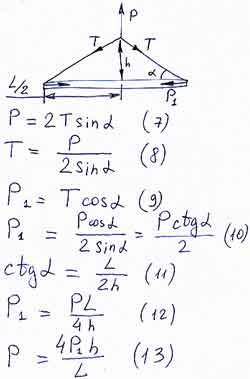 P
T T
L/2 h α
P₁
P = 2Tsinα (7)
T = P / 2sinα (8)
P₁ = Tcosα (9)
P₁ = Pcosα / 2sinα = Pctgα / 2 (10)
ctgα = L / 2h (11)
P₁ = PL / 4h (12)
P = 4P₁h / L (13)